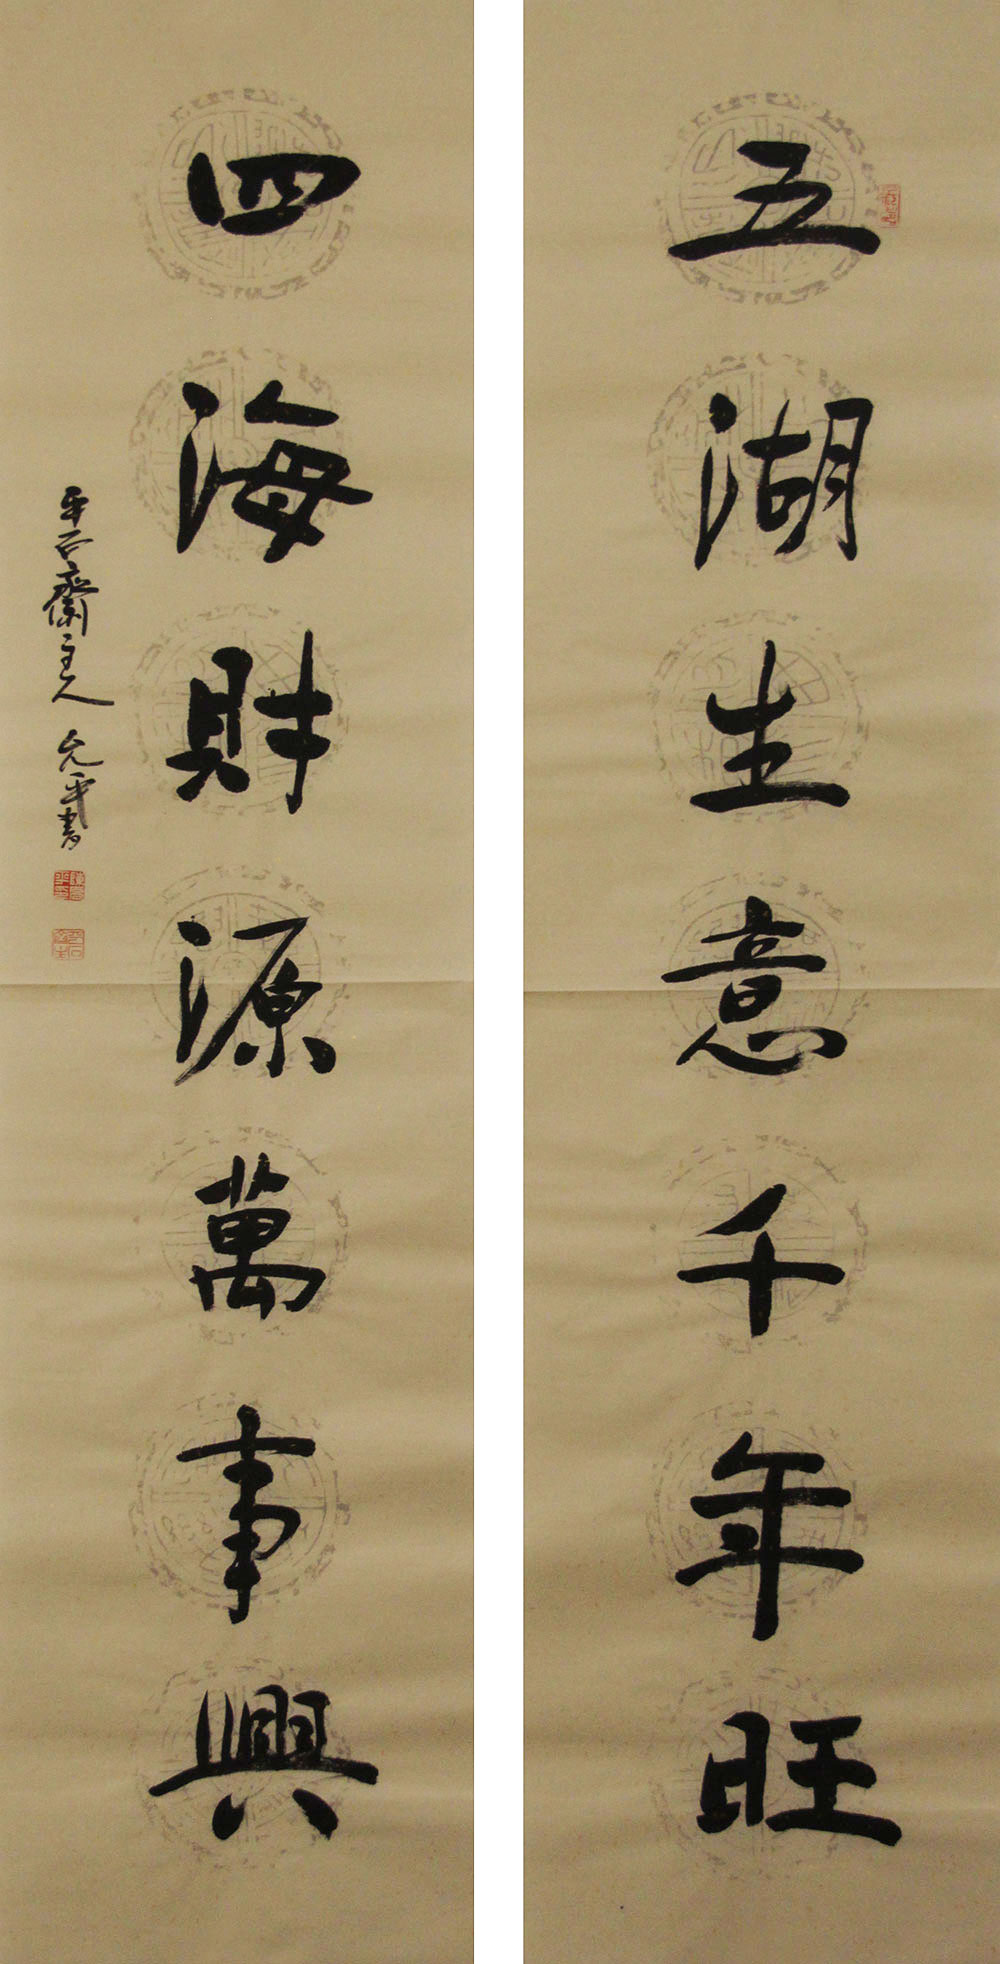 五湖生意千年旺
四海財源萬事興
平石齋主人 允平書